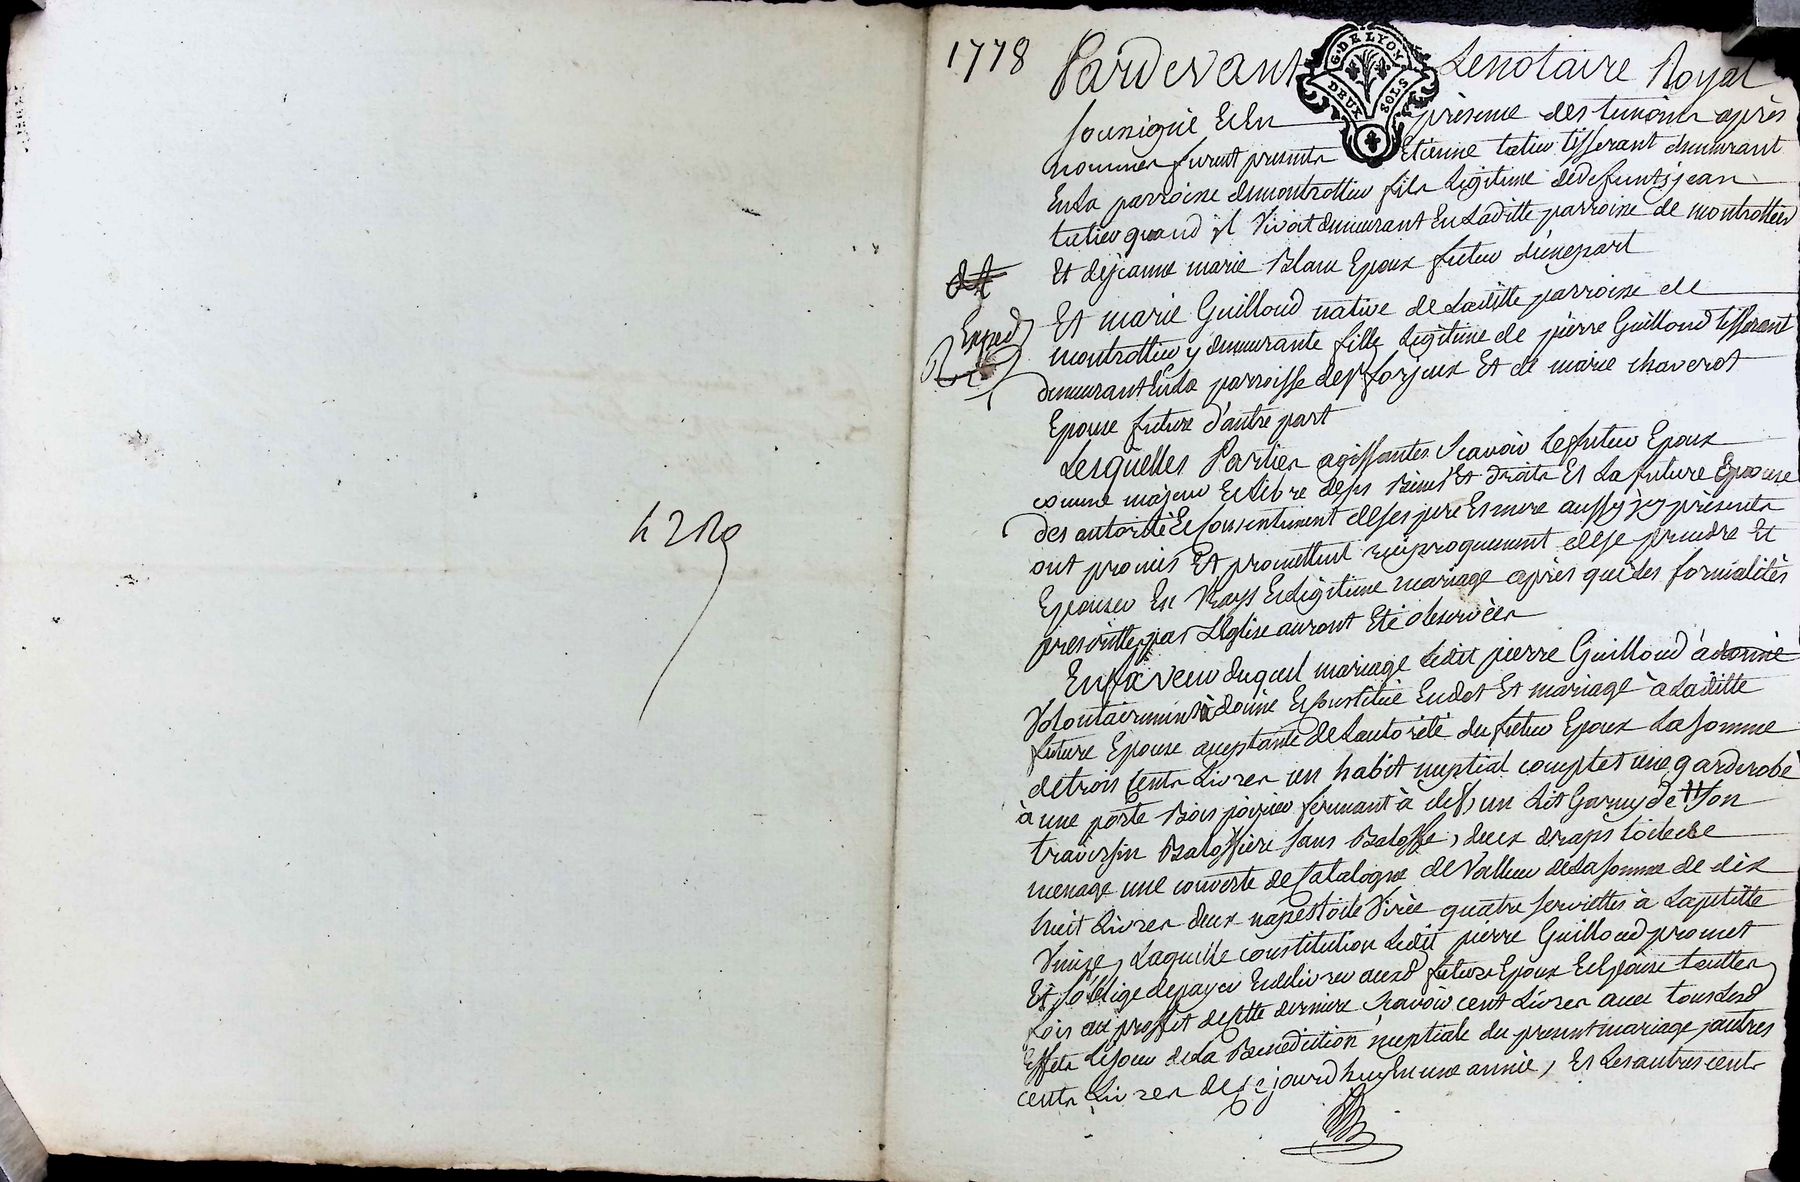 1778
Pardevant Le notaire Royal
G. DE LYON
DEUX SOLS
soussigné Et En présence des temoins après
nommés furent presents Etienne tatieu tisserant demeurant
En La parroisse de montrottier fils Legitime de defunts jean
tatieu quand il Vivoit demeurant En Laditte parroisse de montrottier
Et de jeanne marie Blanc Epoux futur d'une part
Exped
Et marie Guilloud native de Laditte parroisse de
montrottier y demeurante fille Legitime de pierre Guilloud tisserant
demeurant En La parroisse de st forjeux Et de marie chaverot
Epouse future d'autre part
Lesquelles Parties agissantes Scavoir Le futur Epoux
comme majeur Et Libre de ses Biens Et droits Et La future Epouse
des autorité Et Consentiment de ses pere Et mere aussy icy présents
ont promis Et promettent reciproquement de se prendre Et
Epouser En Vrays Et Legitime mariage après que les formalités
prescrittes par L'Eglise auront Eté observées
En faveur duquel mariage Ledit pierre Guilloud à donné
Volontairement à donné Et Constitué En dot Et mariage à Laditte
future Epouse acceptante de L'autorité du futur Epoux La somme
de trois Cents Livres un habit nuptial complet une garderobe
à une porte Bois poirier fermant à clef, un Lit Garny de son
traversin Baloffière sans Baloffe, deux draps toile de
menage une couverte de Catalogne de Valleur de La somme de dix
huit Livres deux napes toile Virée quatre serviettes à La petitte
Venize, Laquelle constitution Ledit pierre Guilloud promet
Et s'oblige de payer Et delivrer auxd futurs Epoux Et plaine touttes
fois au proffit de cette derniere Scavoir cent Livres avec tous Lesd
Effets Le jour de La Benediction nuptiale du present mariage, autres
cents Livres de ce jourd'huy En une année, Et Les autres cents
4 Liv